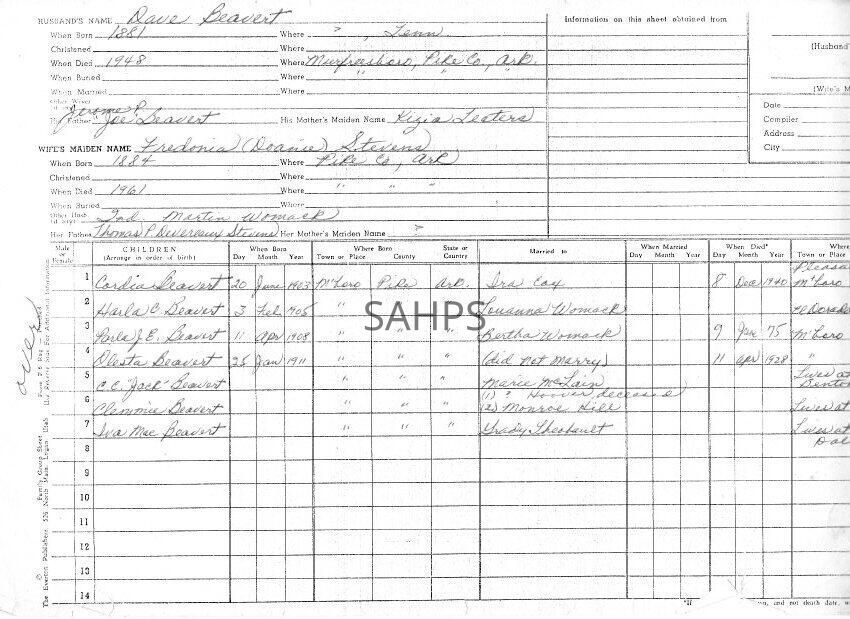 HUSBAND'S NAME Dave Beavert
When Born 1881 Where ? , Tenn.
Christened Where
When Died 1948 Where Murfreesboro, Pike Co., Ark.
When Buried Where
When Married Where
Other Wives
Jerome P.
His Father "Joe" Beavert His Mother's Maiden Name Kizia Lesters
WIFE'S MAIDEN NAME Fredonia (Doanie) Stevens
When Born 1884 Where Pike Co., Ark
Christened Where
When Died 1961 Where " " "
When Buried Where
Other Husb. 2nd. Martin Womack
Her Father Thomas P. Devereaux Stevens Her Mother's Maiden Name ?
Information on this sheet obtained from
(Husband
(Wife's M
Date
Compiler
Address
City
Male or Female CHILDREN (Arrange in order of birth) When Born Day Month Year Where Born Town or Place County State or Country Married to When Married Day Month Year When Died* Day Month Year Where Town or Place
1 Cordia Beavert 20 June 1903 M'boro Pike Ark. Ira Cox 8 Dec 1940 M'boro
2 Harla C. Beavert 3 Feb 1905 " " " Louanna Womack El Dorado
3 Parla J. E. Beavert 11 Apr 1908 " " " Bertha Womack 9 Jan 75 M'boro
4 Olesta Beavert 25 Jan 1911 " " " (did not marry) 11 Apr 1928 "
5 C. E. "Jack" Beavert " " " Marie McLain Lives at Benton
6 Clemmie Beavert " " " (1) ? Hoover, deceased (2) Monroe Hill Lives at
7 Iva Mae Beavert " " " Grady Theobault Lives at
8
9
10
11
12
13
14
SAHPS
over
© The Everton Publishers 526 North Main, Logan, Utah
Family Group Sheet
*If
and not death date, w